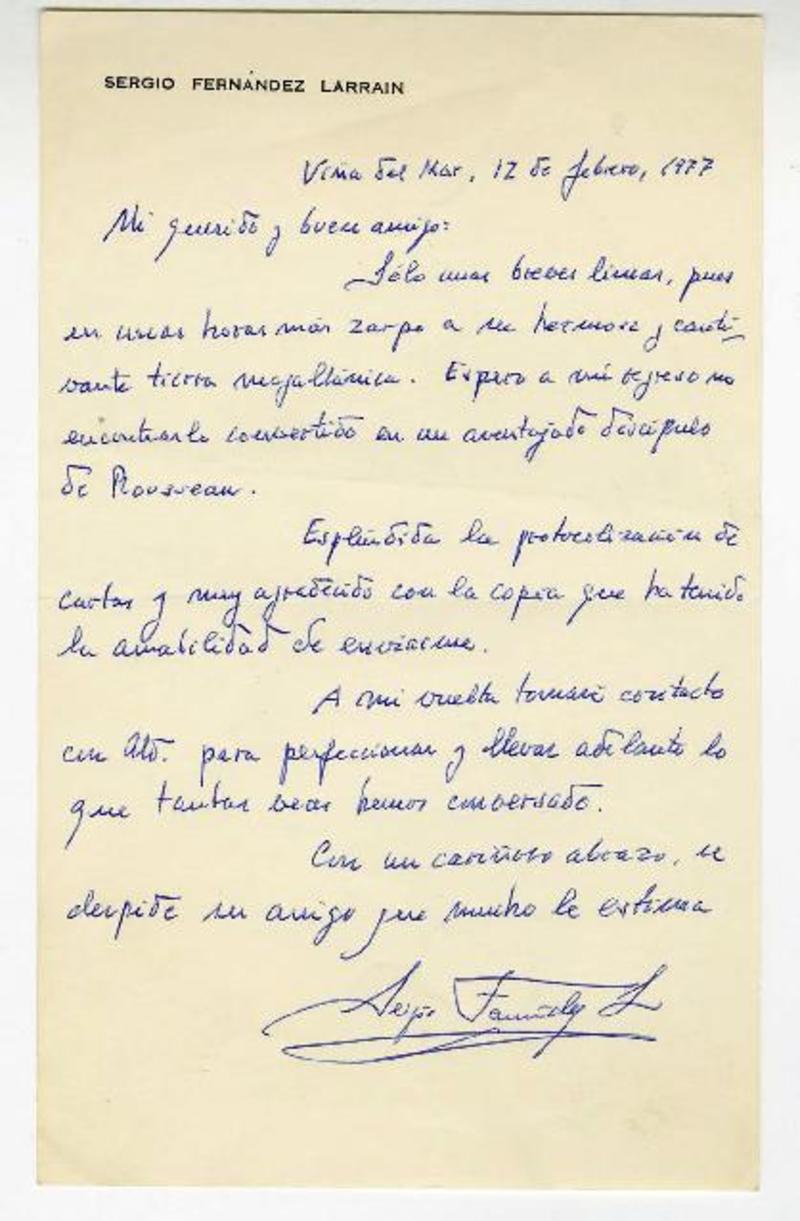 SERGIO FERNÁNDEZ LARRAIN
Viña del Mar, 12 de febrero, 1977
Mi querido y buen amigo:
Sólo unas breves líneas, pues
en unas horas más zarpo a su hermosa y cauti-
vante tierra magallánica. Espero a mi regreso no
encontrarlo convertido en un aventajado discípulo
de Rousseau.
Espléndida la protocolización de
cartas y muy agradecido con la copia que ha tenido
la amabilidad de enviarme.
A mi vuelta tomaré contacto
con Ud. para perfeccionar y llevar adelante lo
que tantas veces hemos conversado.
Con un cariñoso abrazo, se
despide su amigo que mucho le estima
Sergio Fernández L